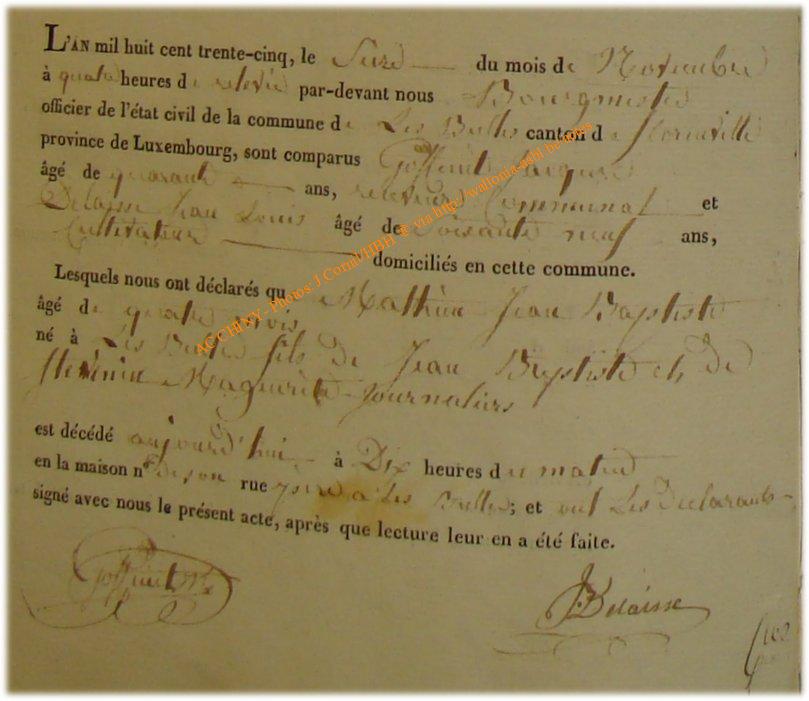 L'AN mil huit cent trente-cinq, le Seize du mois de Novembre
à quatre heures de relevée par-devant nous Bourgmestre
officier de l'état civil de la commune de Les Bulles canton de florenville
province de Luxembourg, sont comparus Goffinet Jacques
âgé de quarante ans, receveur Communal et
Delaisse Jean Louis âgé de soisante neuf ans,
Cultivateur domiciliés en cette commune.
Lesquels nous ont déclarés qu Mathieu Jean Baptiste
âgé de quatre mois
né à Les Bulles fils de Jean Baptiste et de
Marguerite journaliers
est décédé aujourd'hui à Dix heures du matin
en la maison n° de son rue père à Les Bulles; et ont Les Declarants
signé avec nous le présent acte, après que lecture leur en a été faite.
Goffinet
J Delaisse
ACCHINY - Photos: J.Conal/HBH © via http://wallonia-asbl.be